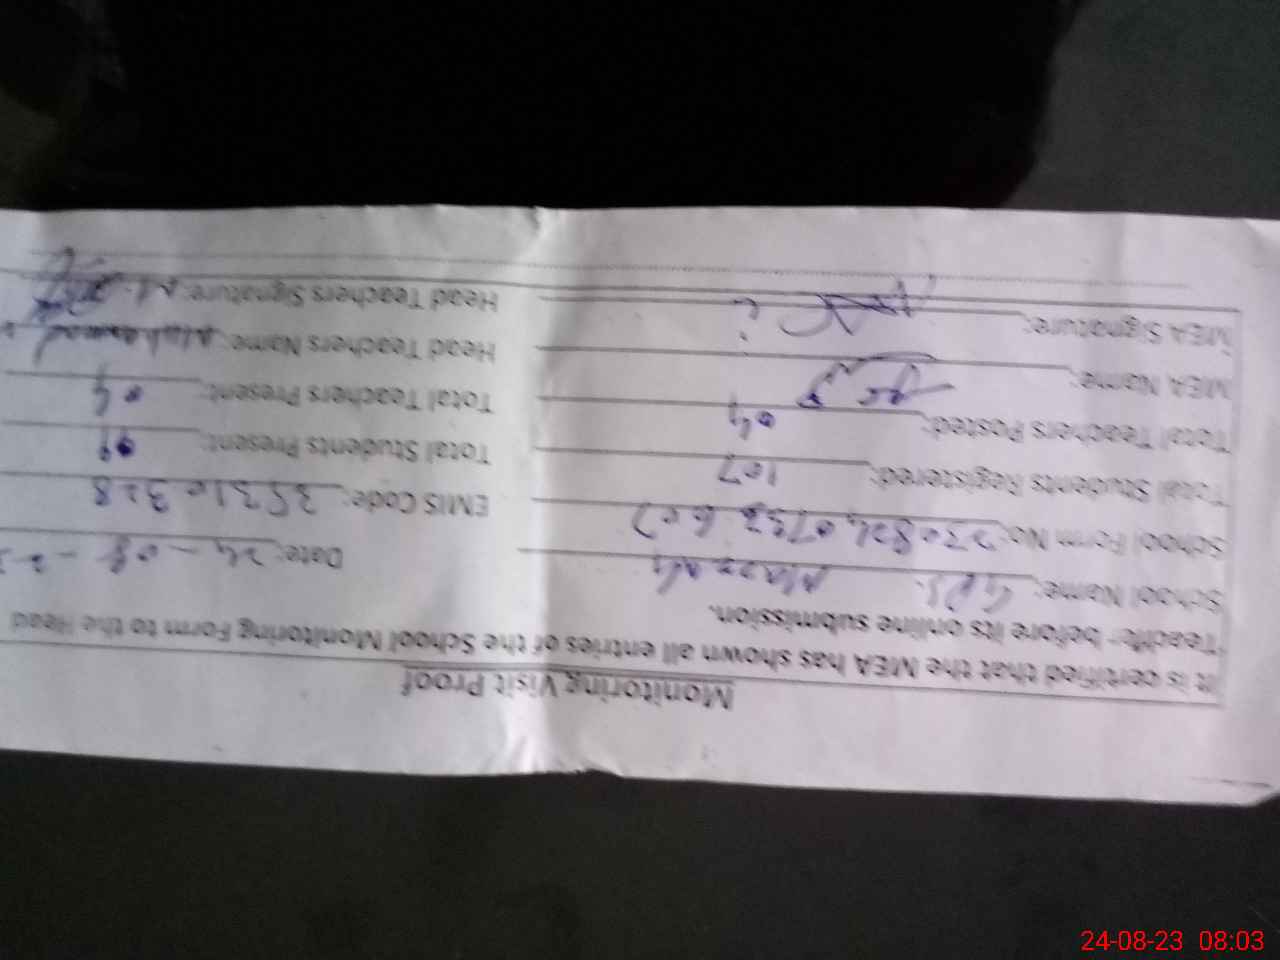 Monitoring Visit Proof
It is certified that the MEA has shown all entries of the School Monitoring Form to the Head
Teacher before its online submission.
School Name: GPS. Date: 24-08-2
School Form No: EMIS Code: 35310328
Total Students Registered: 107 Total Students Present:
Total Teachers Posted: 04 Total Teachers Present: 04
MEA Name: Head Teachers Name: Muhammad
MEA Signature: Head Teachers Signature:
24-08-23 08:03